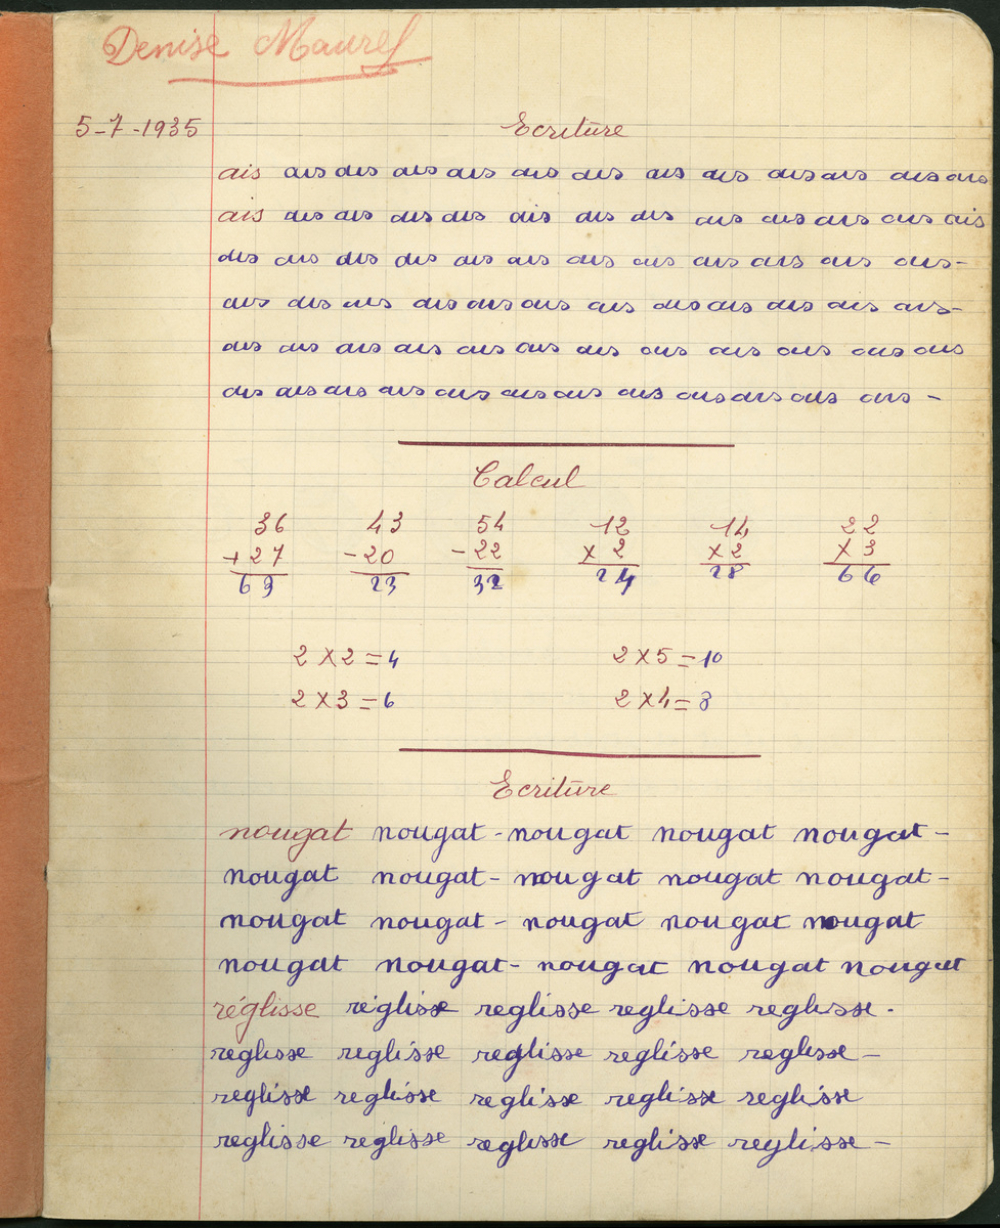 Denise Maurel
5-7-1935 Ecriture
ais ais ais ais ais ais ais ais ais ais ais ais ais
ais ais ais ais ais ais ais ais ais ais ais ais ais
ais ais ais ais ais ais ais ais ais ais ais ais -
ais ais ais ais ais ais ais ais ais ais ais ais -
ais ais ais ais ais ais ais ais ais ais ais ais
ais ais ais ais ais ais ais ais ais ais ais ais -
Calcul
36 43 54 12 14 22
+27 -20 -22 x 2 x 2 x 3
63 23 32 24 28 66
2 x 2 = 4 2 x 5 = 10
2 x 3 = 6 2 x 4 = 8
Ecriture
nougat nougat - nougat nougat nougat -
nougat nougat - nougat nougat nougat -
nougat nougat - nougat nougat nougat
nougat nougat - nougat nougat nougat
réglisse réglisse reglisse reglisse reglisse -
reglisse reglisse reglisse reglisse reglisse -
reglisse reglisse reglisse reglisse reglisse
reglisse reglisse reglisse reglisse reglisse -